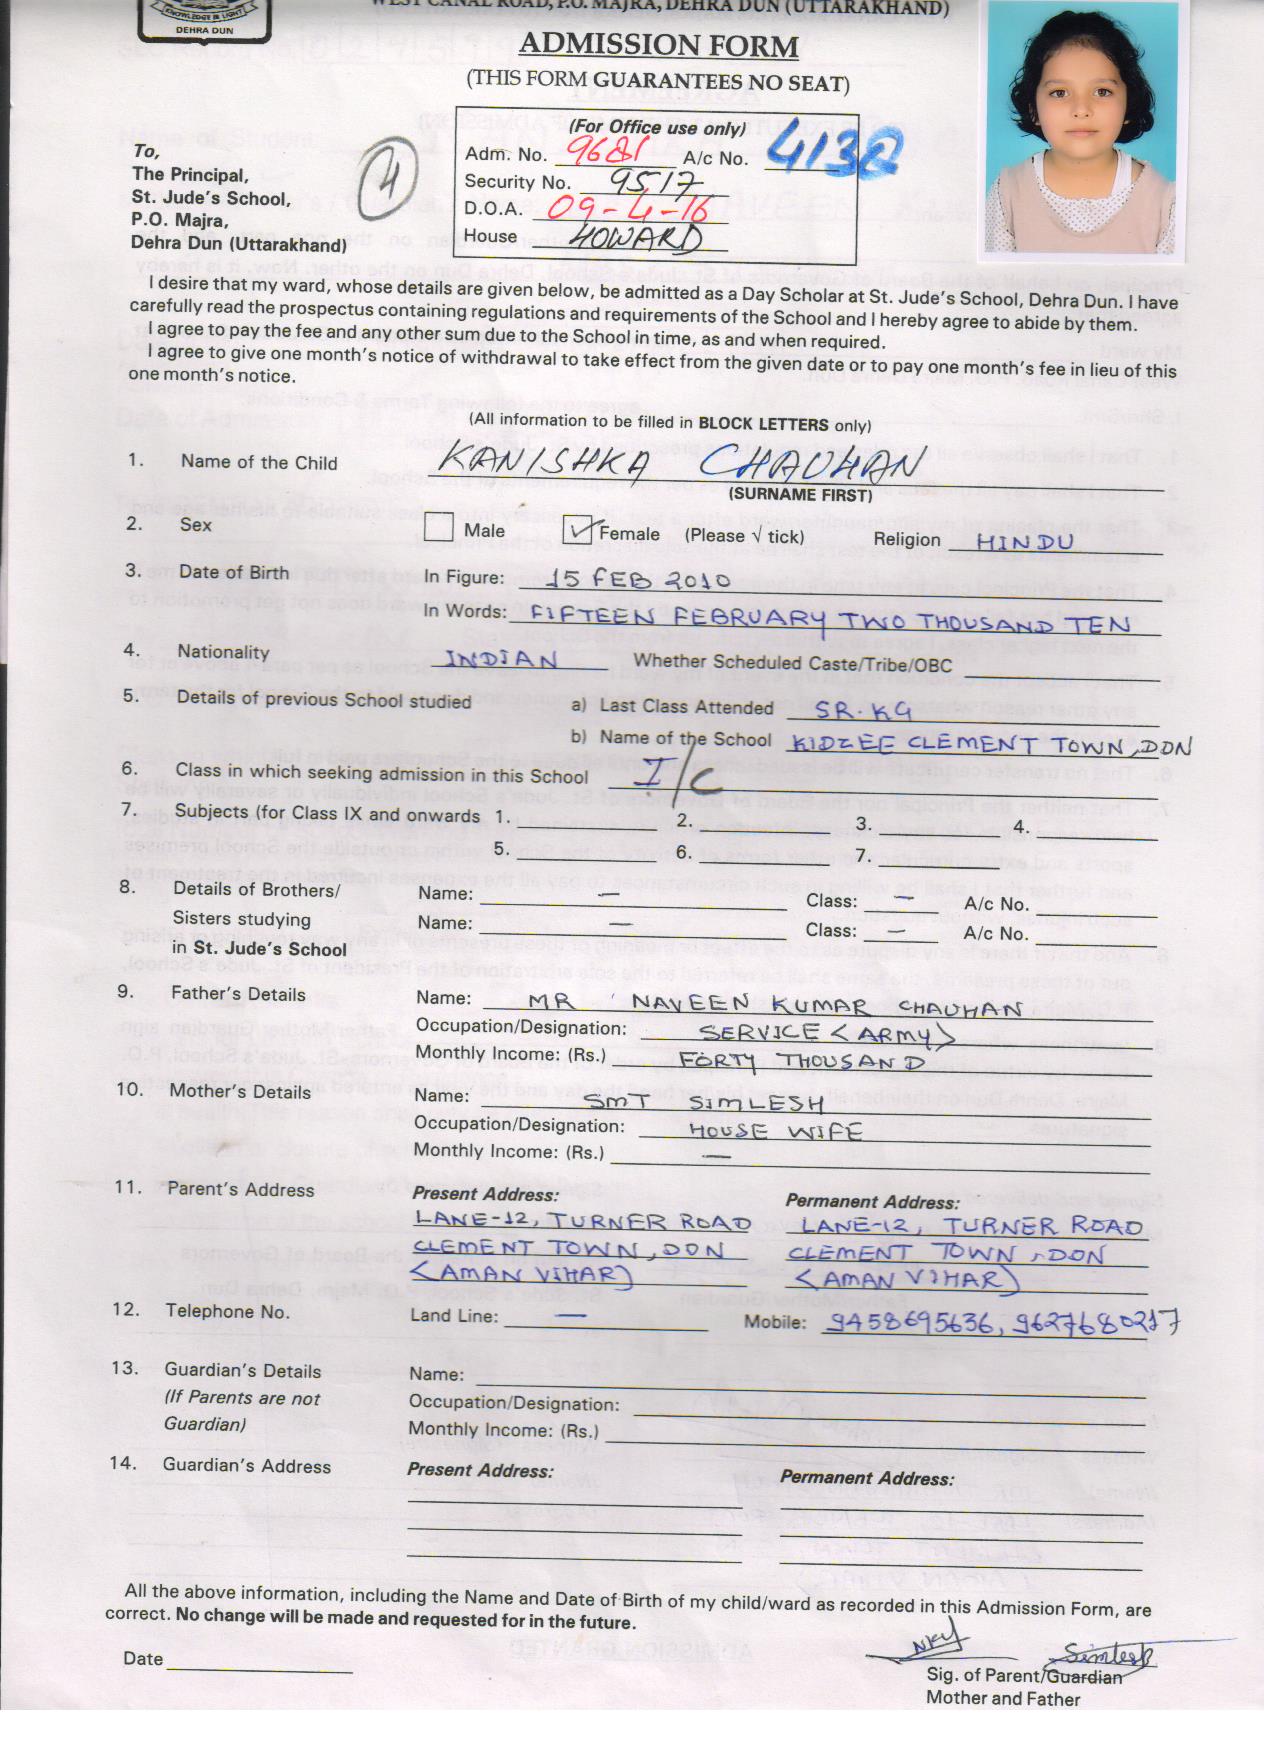 KNOWLEDGE IS LIGHT
DEHRA DUN
WEST CANAL ROAD, P.O. MAJRA, DEHRA DUN (UTTARAKHAND)
ADMISSION FORM
(THIS FORM GUARANTEES NO SEAT)
4
(For Office use only)
Adm. No. 9681 A/c No. 4138
Security No. 9517
D.O.A. 09-4-16
House HOWARD
To,
The Principal,
St. Jude's School,
P.O. Majra,
Dehra Dun (Uttarakhand)
I desire that my ward, whose details are given below, be admitted as a Day Scholar at St. Jude's School, Dehra Dun. I have
carefully read the prospectus containing regulations and requirements of the School and I hereby agree to abide by them.
I agree to pay the fee and any other sum due to the School in time, as and when required.
I agree to give one month's notice of withdrawal to take effect from the given date or to pay one month's fee in lieu of this
one month's notice.
(All information to be filled in BLOCK LETTERS only)
1. Name of the Child KANISHKA CHAUHAN
(SURNAME FIRST)
2. Sex Male ✓ Female (Please √ tick) Religion HINDU
3. Date of Birth In Figure: 15 FEB 2010
In Words: FIFTEEN FEBRUARY TWO THOUSAND TEN
4. Nationality INDIAN Whether Scheduled Caste/Tribe/OBC
5. Details of previous School studied a) Last Class Attended SR. KG
b) Name of the School KIDZEE CLEMENT TOWN, DDN
6. Class in which seeking admission in this School I/C
7. Subjects (for Class IX and onwards 1. 2. 3. 4.
5. 6. 7.
8. Details of Brothers/ Name: — Class: — A/c No.
Sisters studying Name: — Class: — A/c No.
in St. Jude's School
9. Father's Details Name: MR NAVEEN KUMAR CHAUHAN
Occupation/Designation: SERVICE <ARMY>
Monthly Income: (Rs.) FORTY THOUSAND
10. Mother's Details Name: SMT SIMLESH
Occupation/Designation: HOUSE WIFE
Monthly Income: (Rs.) —
11. Parent's Address Present Address: Permanent Address:
LANE-12, TURNER ROAD LANE-12, TURNER ROAD
CLEMENT TOWN, DDN CLEMENT TOWN, DDN
<AMAN VIHAR) <AMAN VIHAR)
12. Telephone No. Land Line: — Mobile: 9458695636, 9627680217
13. Guardian's Details Name:
(If Parents are not Occupation/Designation:
Guardian) Monthly Income: (Rs.)
14. Guardian's Address Present Address: Permanent Address:
All the above information, including the Name and Date of Birth of my child/ward as recorded in this Admission Form, are
correct. No change will be made and requested for in the future.
Simlesh
Date Sig. of Parent/Guardian
Mother and Father